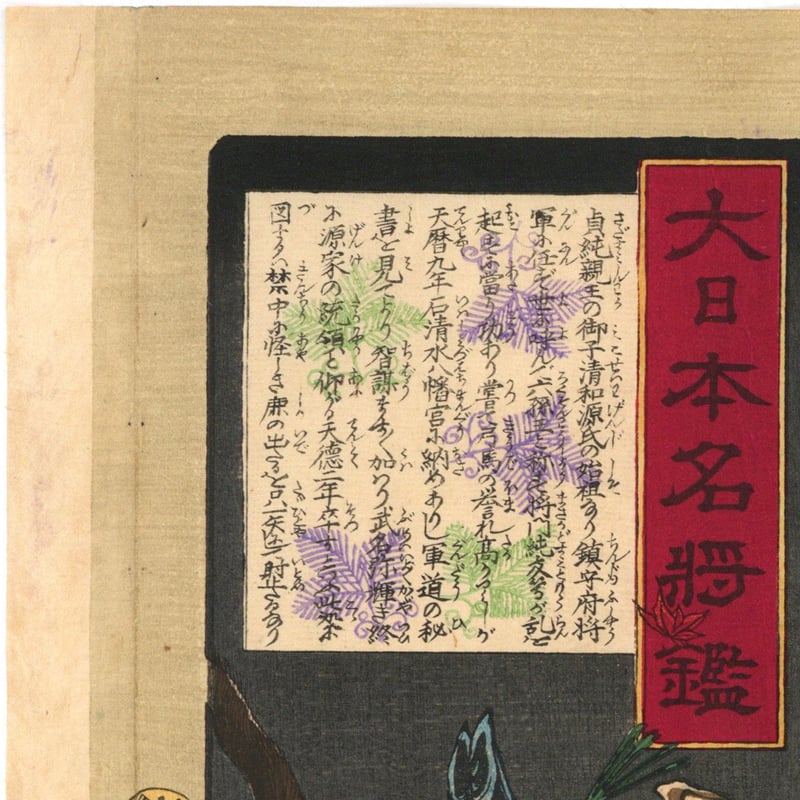 大日本名将鑑
貞純親王の御子清和源氏の始祖なり鎮守府将
軍に任ず世に呼んで六孫王と称す将門純友等が乱を
起すに當り功あり嘗て弓馬の誉れ高かりしが
天暦九年石清水八幡宮に納めありし軍道の秘
書を見てより智謀ます〳〵加はり武名弥輝き終
に源家の統領と仰がる天徳二年卒す
図する禁中に怪しき鹿の出たるを只一矢に射たるなり